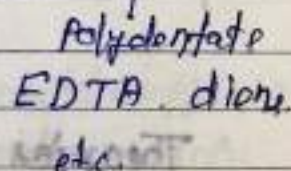 Polydentate
EDTA dione
etc.